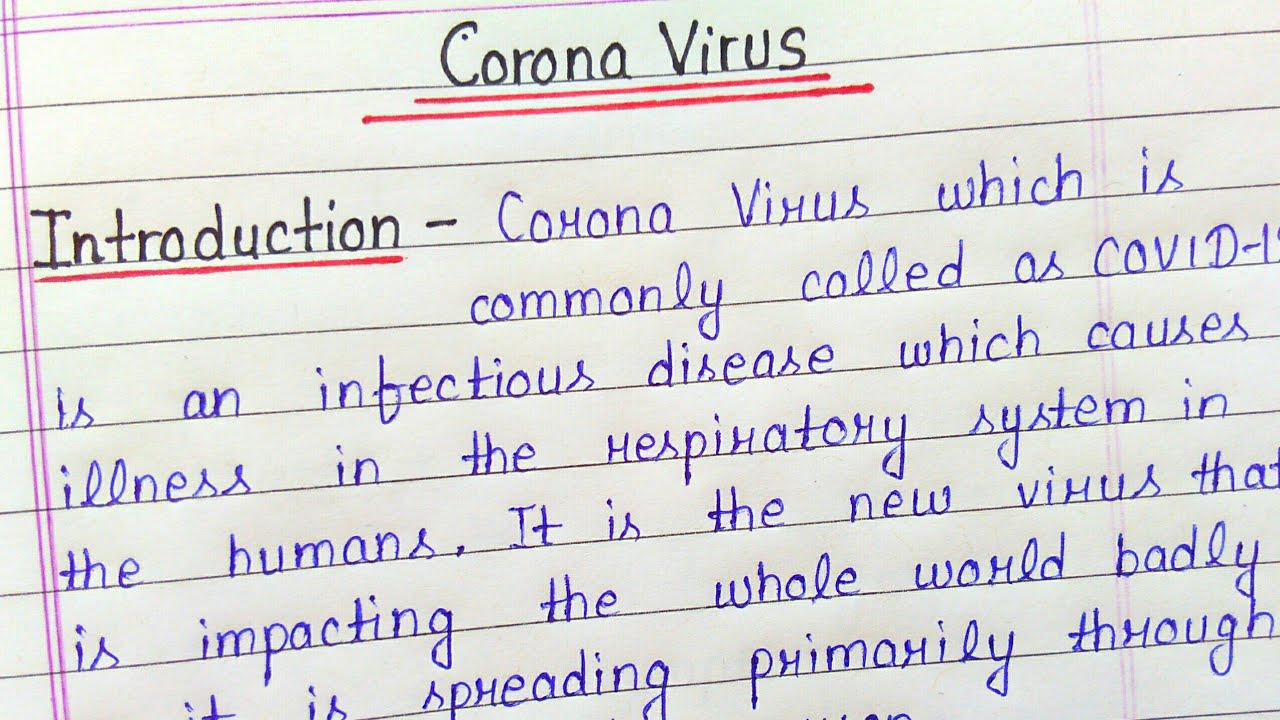 Corona Virus
Introduction - Corona Virus which is
commonly called as COVID-19
is an infectious disease which causes
illness in the respiratory system in
the humans. It is the new virus that
is impacting the whole world badly
it is spreading primarily through